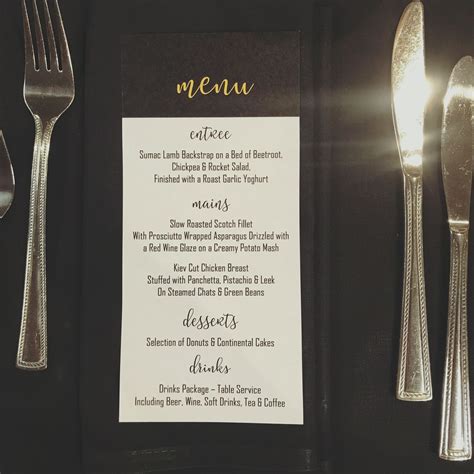 menu
entree
Sumac Lamb Backstrap on a Bed of Beetroot,
Chickpea & Rocket Salad,
Finished with a Roast Garlic Yoghurt
mains
Slow Roasted Scotch Fillet
With Prosciutto Wrapped Asparagus Drizzled with
a Red Wine Glaze on a Creamy Potato Mash
Kiev Cut Chicken Breast
Stuffed with Panchetta, Pistachio & Leek
On Steamed Chats & Green Beans
desserts
Selection of Donuts & Continental Cakes
drinks
Drinks Package – Table Service
Including Beer, Wine, Soft Drinks, Tea & Coffee